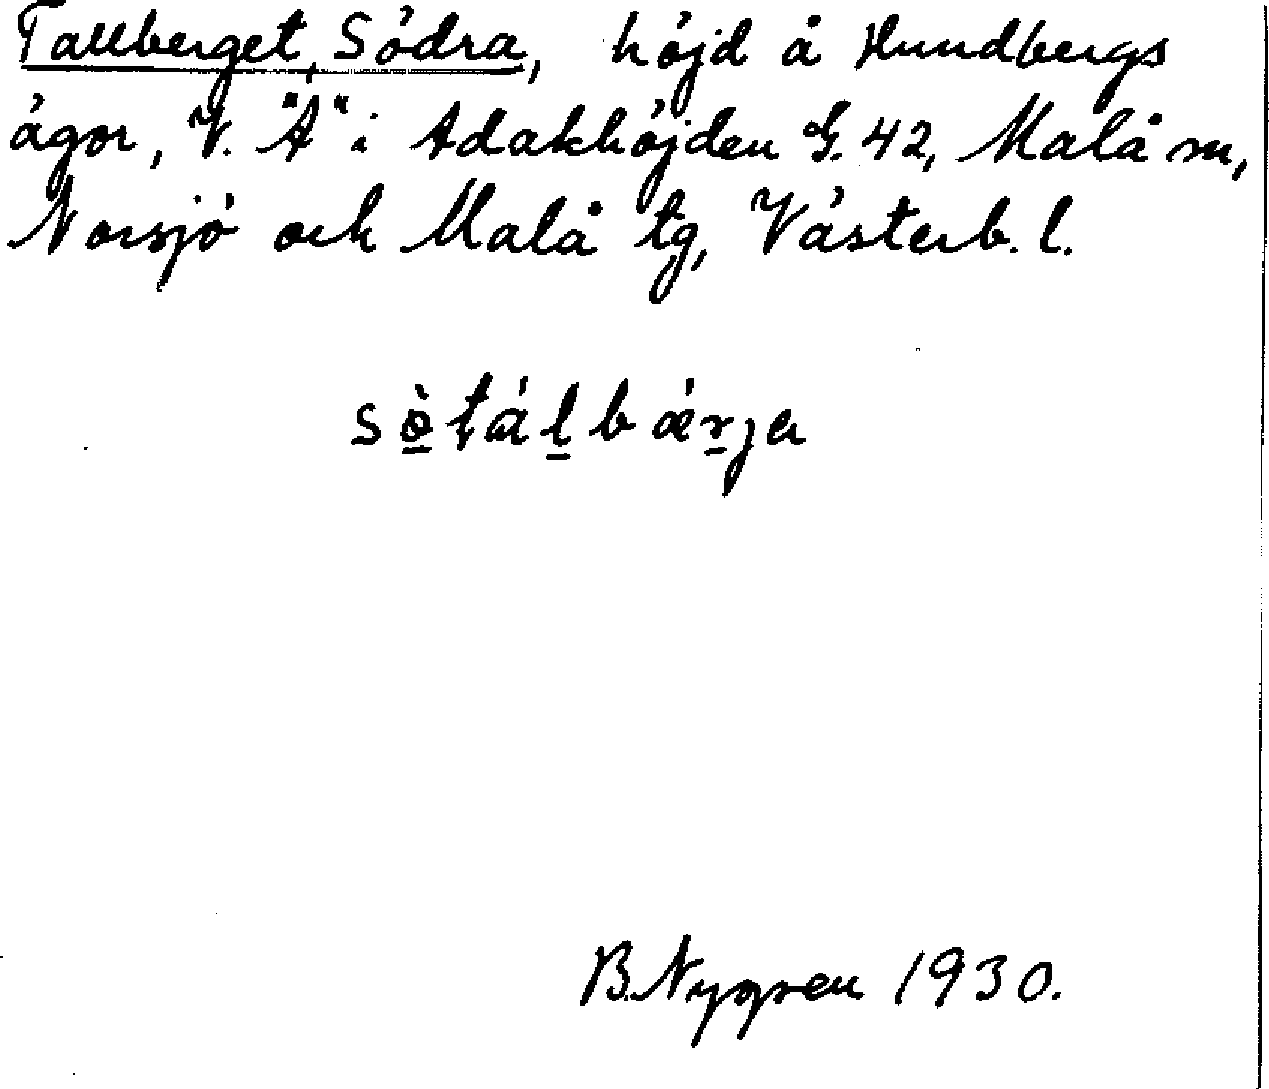 Tallberget, Södra, höjd å Hundbergs
ägor, V. "A" i Adakhöjden G. 42, Malå sn,
Norsjö och Malå tg, Västerb. l.
sò̱tálḇǽrja
B. Nygren 1930.